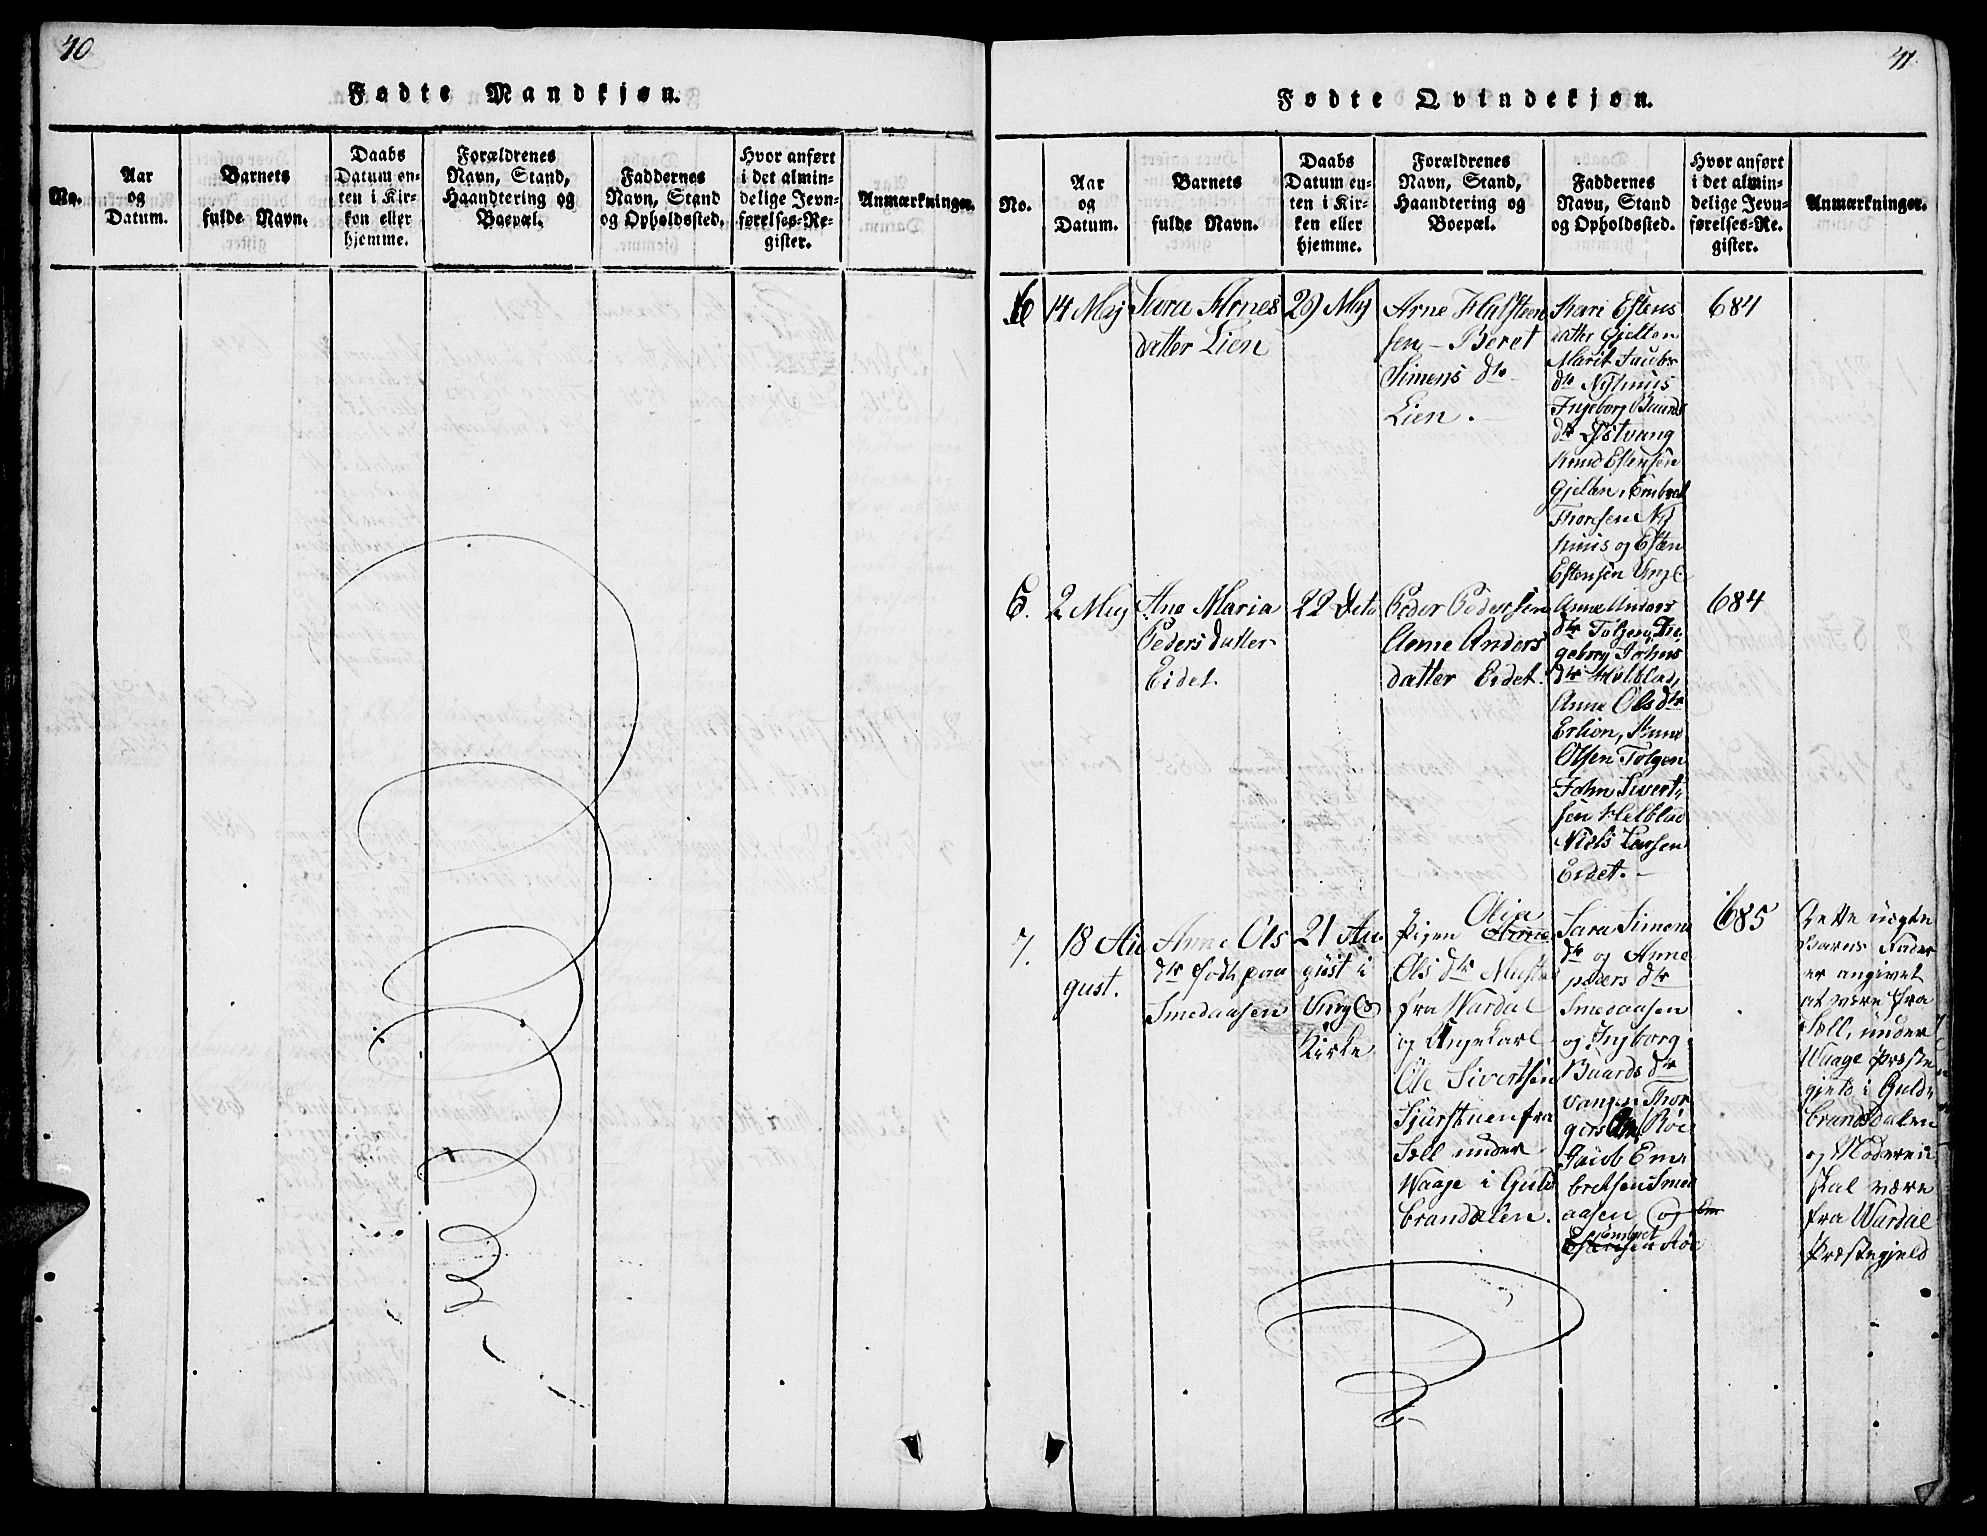 40
Fødte Mandkjøn.
No.
Aar
og
Datum.
Barnets
fulde Navn.
Daabs
Datum en-
ten i Kir-
ken eller
hjemme.
Forældrenes
Navn, Stand,
Haandtering og
Boepæl.
Faddernes
Navn, Stand
og Opholdssted.
Hvor anført
i det almin-
delige Jevn-
førelses-Re-
gister.
Anmærkninger.
41
Fødte Qvindekjøn.
No.
Aar
og
Datum.
Barnets
fulde Navn.
Daabs
Datum en-
ten i Kir-
ken eller
hjemme.
Forældrenes
Navn, Stand,
Haandtering og
Boepæl.
Faddernes
Navn, Stand
og Opholdssted.
Hvor anført
i det almin-
delige Jevn-
førelses-Re-
gister.
Anmærkninger.
6
14 Maj
Sara Arnes
datter Lien
29 Maj
Arne Halsteen
sen – Beret
Simens dtr
Lien.
Kari Estens
datter Gjelten
Marit Jacobs
dtr Nysmuis
Ingeborg Baards
dtr Østvang
Knud Estensen
Gjelten, Embret
Thoresen Ny
muis og Esten
Estensen
684
5.
2 Maj
Ane Maria
Peders datter
Eidet.
22 Dito
Peder Pedersen
Anne Anders
datter Eidet.
Anne Anders
dtr Tolgen, In
geborg Johns
dtr Helblad,
Anne Ols dtr
Erlien, Knud
Olsen Tolgen
John Sivert
sen Helblad
Niels Larsen
Eidet.
684
7.
18 Au
gust.
Anne Ols
dtr født paa
Smedaasen
21 Au
gust i
Kirke
Pigen Olia
Ols dtr
fra Wardal
og Ungekarl
Ole Sivertsen
Sjurstuen fra
Sell under
Waage i Guld
brandalen.
Sara Simens
dtr og Anne
peders dtr
Smedaasen
og Ingborg
Baards dtr
vangen Thor
gers Røe
Jacob Em
bretsen Smed
aasen og Em
Embret
Estensen Røe
685
Dette uægte
Barns Fader
er angivet
at være fra
Sell, under
Waage Præste
gjeld i Guld
brandsdalen
og Moderen
skal være
fra Wardal
Præstegjeld